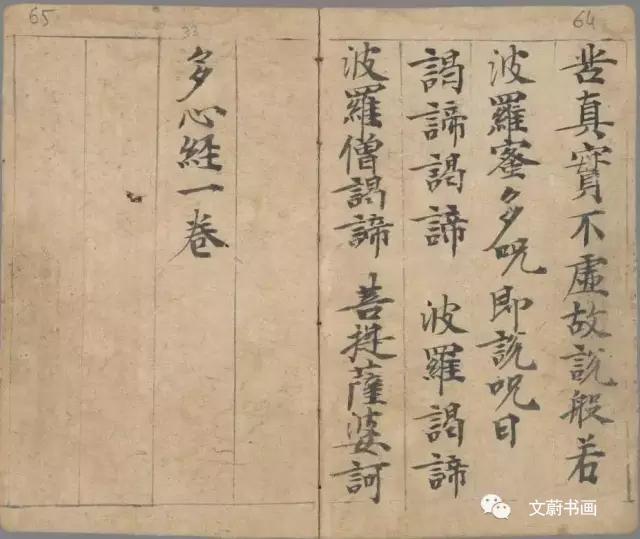 64
苦真實不虛故說般若
波羅蜜多呪即説呪曰
謁諦謁諦 波羅謁諦
波羅僧謁諦 菩提薩婆訶
65
33
多心経一卷
文蔚书画